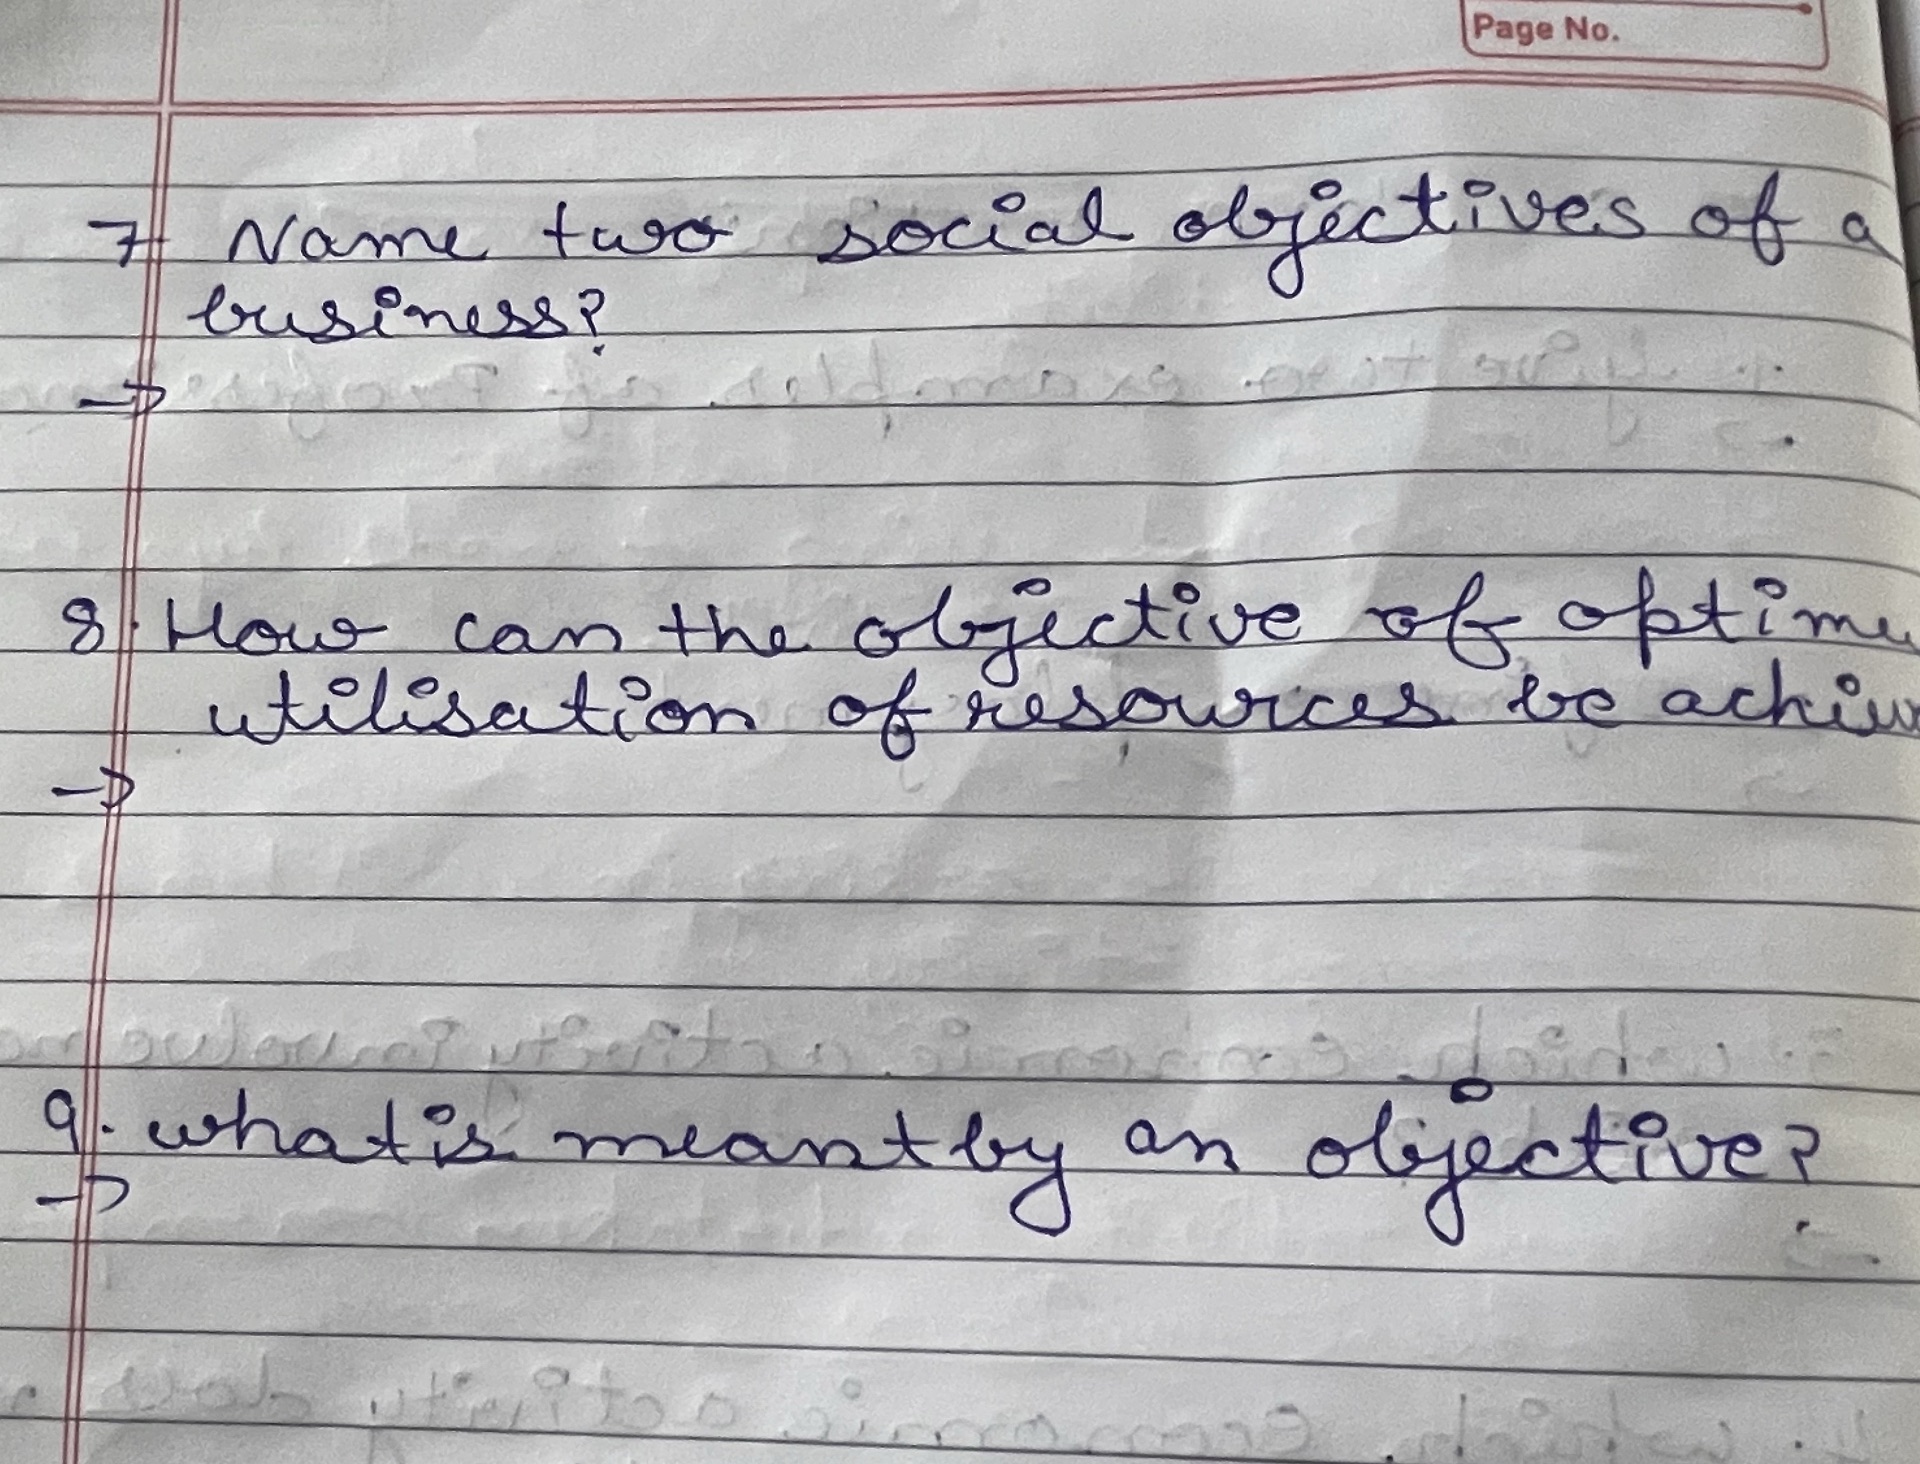 Page No.
7 Name two social objectives of a
business?
→
8. How can the objective of
utilisation of resources be
→
9. what is meant by an objective?
→